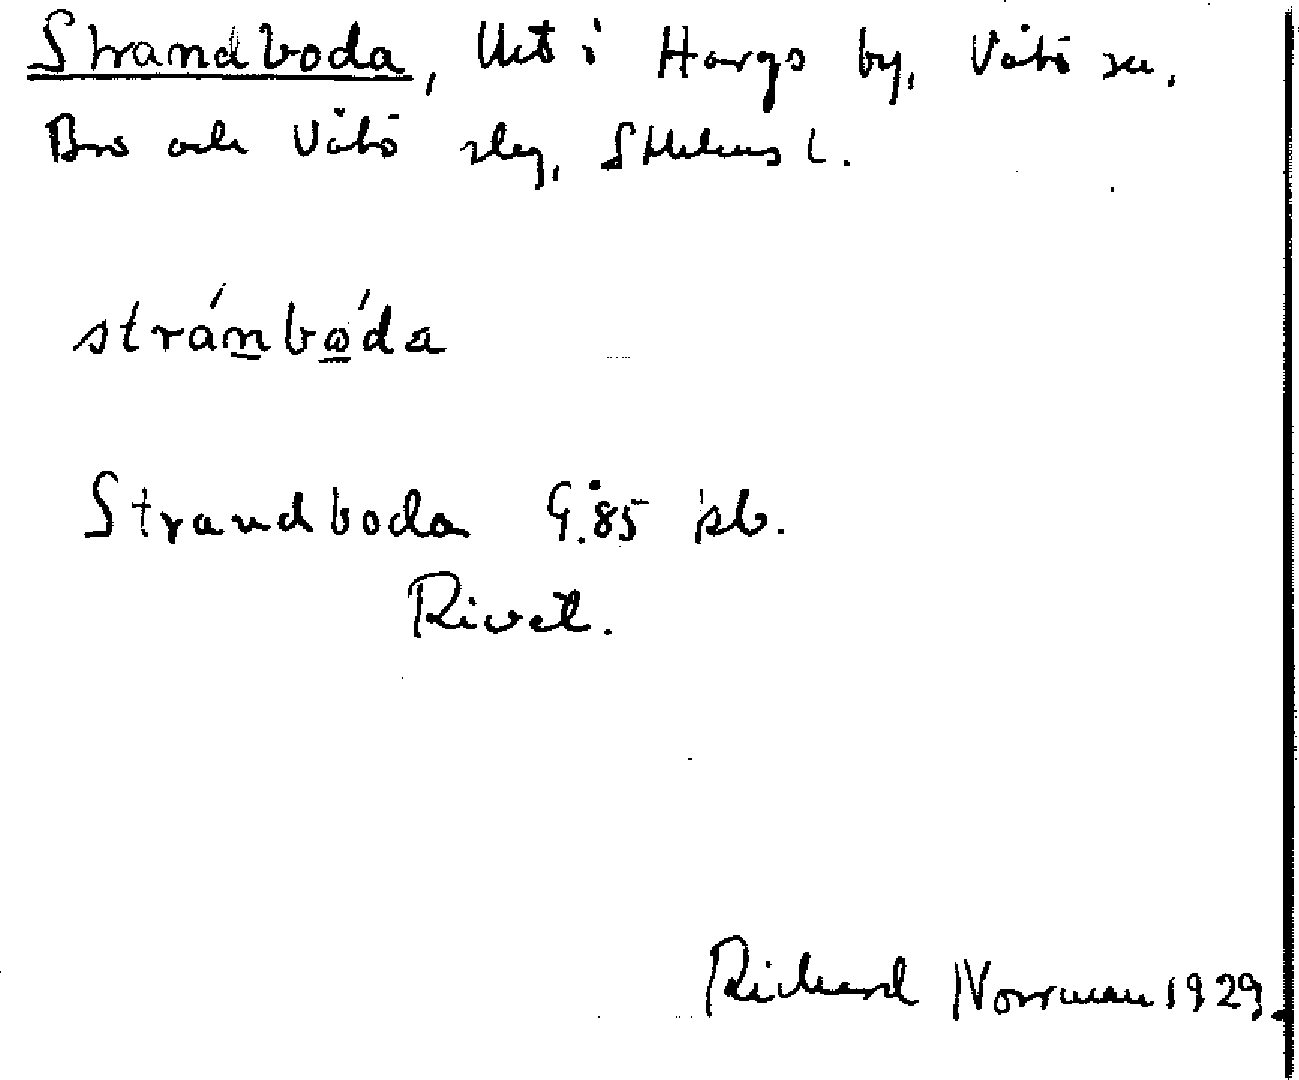 Strandboda, Utj i Hargs by, Vätö sn.
Bro och Vätö slg, Sthlms l.
stránbω´da
Strandboda G.85 jsb.
Rivet.
Richard Norrman 1929.